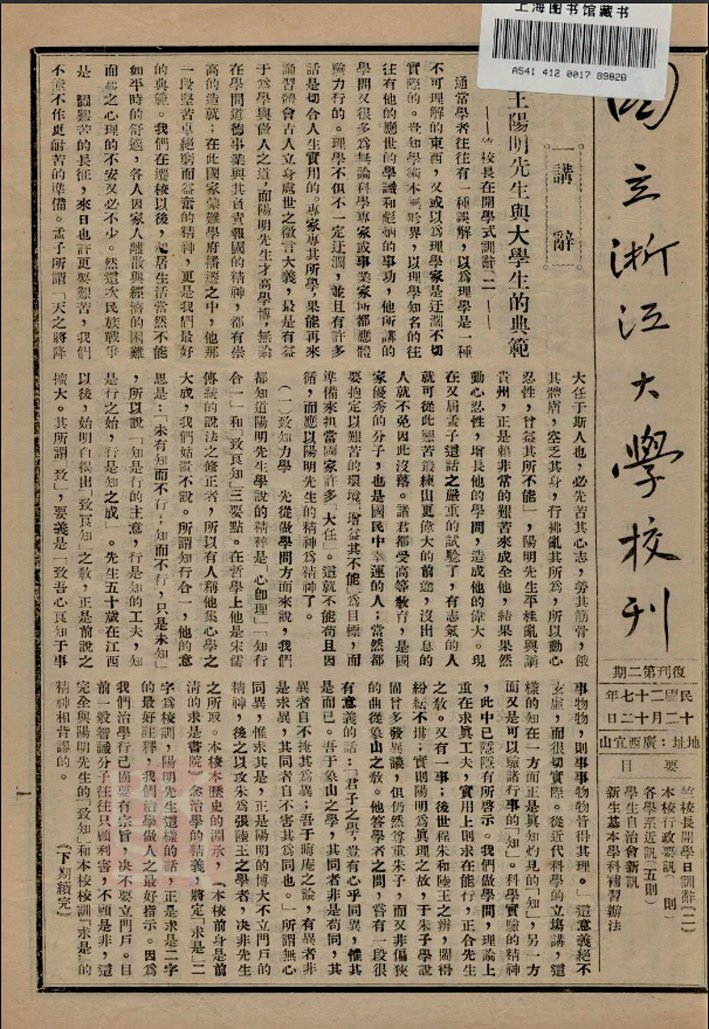 上海图书馆藏书
A541 412 0017 8982B
國立浙江大學校刊
復刊第二期
民國二十七年
十二月十二日
地址：廣西宜山
要目
竺校長開學日訓辭(二)
本校行政要訊（一則）
各學系近訊（五則）
學生自治會新訊
新生基本學科補習辦法
講辭
王陽明先生與大學生的典範
——竺校長在開學式訓辭(二)——
通常學者往往有一種誤解，以爲理學是一種
不可理解的東西，又或以爲理學家是迂濶不切
實際的。豈知學術本無畛界，以理學知名的往
往有他的應世的學識和彪炳的事功，他所講的
學問又很多爲無論科學專家或事業家所都應體
驗力行的。理學不但不一定迂濶，並且有許多
話是切合人生實用的。專家專其所學，果能再來
誦習體會古人立身處世之微言大義，最是有益
于爲學與做人之道，而陽明先生才高學博，無論
在學問道德事業與其負責報國的精神，都有崇
高的造就；在此國家蒙難學府播遷之中，他那
一段堅苦卓絕窮而益奮的精神，更是我們最好
的典範。我們在遷校以後，起居生活當然不能
如平時的舒適，各人因家人離散與經濟的困難
而感之心理的不安又必不少。然這次民族戰爭
是艱苦的長征，來日也許更要艱苦，我們
不能不作更耐苦的準備。孟子所謂「天之將降
大任于斯人也，必先苦其心志，勞其筋骨，餓
其體膚，空乏其身，行拂亂其所爲，所以動心
忍性，曾益其所不能」，陽明先生平桂亂與謫
貴州，正是賴非常的艱苦來成全他，結果果然
動心忍性，增長他的學問，造成他的偉大。現
在又屆孟子這話之嚴重的試驗了，有志氣的人
就可從此艱苦鍛練出更偉大的前途，沒出息的
人就不免因此沒落。諸君都受高等敎育，是國
家優秀的分子，也是國民中幸運的人；當然都
要抱定以艱苦的環境「增益其不能」爲目標，而
準備來担當國家許多「大任」。這就不能苟且因
循，而應以陽明先生的精神爲精神了。
(一)致知力學　先從做學問方面來說，我們
都知道陽明先生學說的精粹是「心卽理」「知行
合一」和「致良知」三要點。在哲學上他是宋儒
傳統的說法之修正者，所以有人稱他集心學之
大成，我們姑置不說。所謂知行合一，他的意
思是：「未有知而不行；知而不行，只是未知」
，所以說「知是行的主意，行是知的工夫，知
是行之始，行是知之成」。先生五十歲在江西
以後，始明白揭出「致良知」之敎，正是前說之
擴大。其所謂「致」，要義是「致吾心良知于事
事物物，則事事物物皆得其理。」這意義絕不
玄虛，而很切實際。從近代科學的立塲講，這
樣的知在一方面正是眞知灼見的「知」，另一方
面又是可以驗諸行事的「知」。科學實驗的精神
，此中已隱隱有所啓示。我們做學問，理論上
重在求眞工夫，實用上則求在能行，正合先生
之敎。又有一事；後世程朱和陸王之辨，鬧得
紛紜不堪；實則陽明爲眞理之故，于朱子學說
固曾多發異議，但仍然尊重朱子，而又非偏狹
的曲從象山之敎。他答學者之問，嘗有一段很
有意義的話：「君子之學，豈有心乎同異，惟其
是而已。吾于象山之學，其同者非是苟同，其
異者自不掩其爲異；吾于晦庵之論，有異者非
是求異，其同者自不害其爲同也。」所謂無心
同異，惟求其是，正是陽明的博大不立門戶的
精神，後之以攻朱爲張陸王之學者，决非先生
之所取。本校本歷史的淵承，（本校前身是前
清的求是書院）念治學的精義，將定「求是」二
字爲校訓，陽明先生這樣的話，正是求是二字
的最好註釋，我們治學做人之最好指示。因爲
我們治學行己固要有宗旨，决不要立門戶。目
前一般智識分子往往只顧利害，不顧是非，這
完全與陽明先生的「致知」和本校校訓「求是」的
精神相背謬的。
（下期續完）